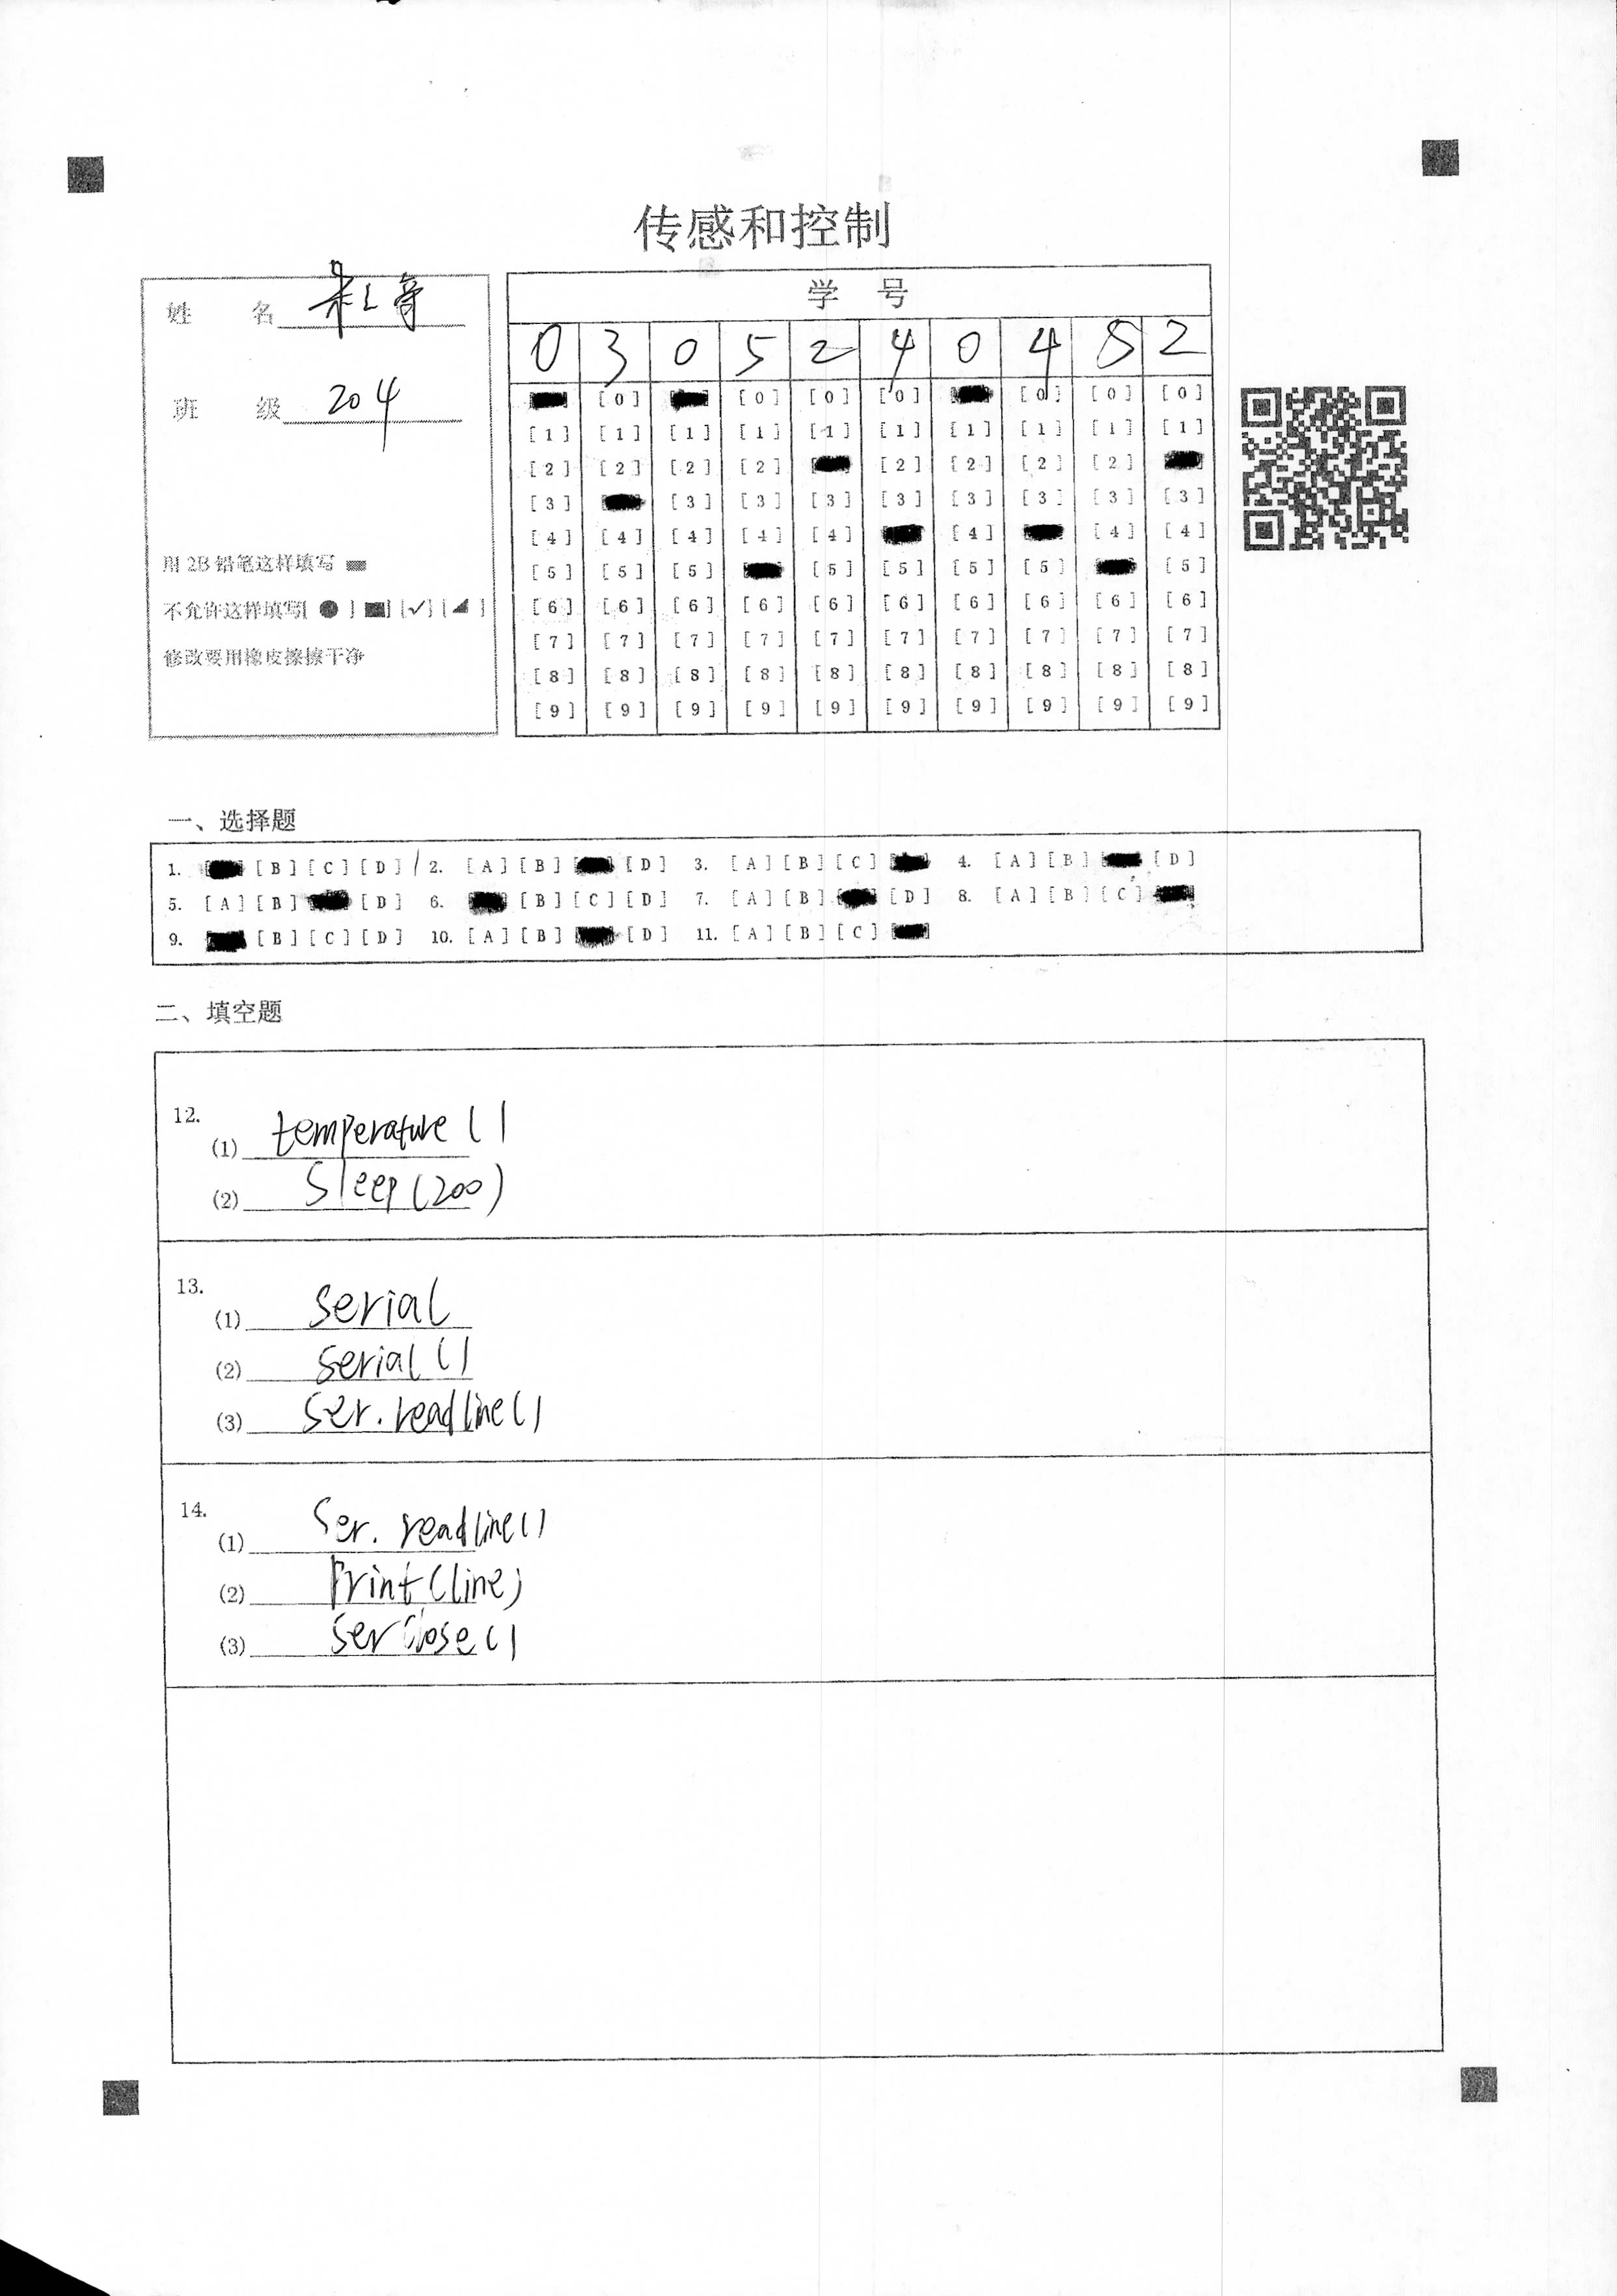 传感和控制
姓 名
班 级 204
用 2B 铅笔这样填写
不允许这样填写[ ● ] [■] [✓] [◢ ]
修改要用橡皮擦擦干净
学 号
0 3 0 5 2 4 0 4 5 2
[0] [0] [0] [0] [0] [0] [0]
[1] [1] [1] [1] [1] [1] [1] [1] [1] [1]
[2] [2] [2] [2] [2] [2] [2] [2]
[3] [3] [3] [3] [3] [3] [3] [3] [3]
[4] [4] [4] [4] [4] [4] [4] [4]
[5] [5] [5] [5] [5] [5] [5] [5]
[6] [6] [6] [6] [6] [6] [6] [6] [6] [6]
[7] [7] [7] [7] [7] [7] [7] [7] [7] [7]
[8] [8] [8] [8] [8] [8] [8] [8] [8] [8]
[9] [9] [9] [9] [9] [9] [9] [9] [9] [9]
一、选择题
1. [B] [C] [D] 2. [A] [B] [D] 3. [A] [B] [C] 4. [A] [B] [D]
5. [A] [B] [D] 6. [B] [C] [D] 7. [A] [B] [D] 8. [A] [B] [C]
9. [B] [C] [D] 10. [A] [B] [D] 11. [A] [B] [C]
二、填空题
12.
(1) temperature()
(2) Sleep(200)
13.
(1) serial
(2) serial()
(3) Ser.readline()
14.
(1) Ser.readline()
(2) Print(line)
(3) ser close()